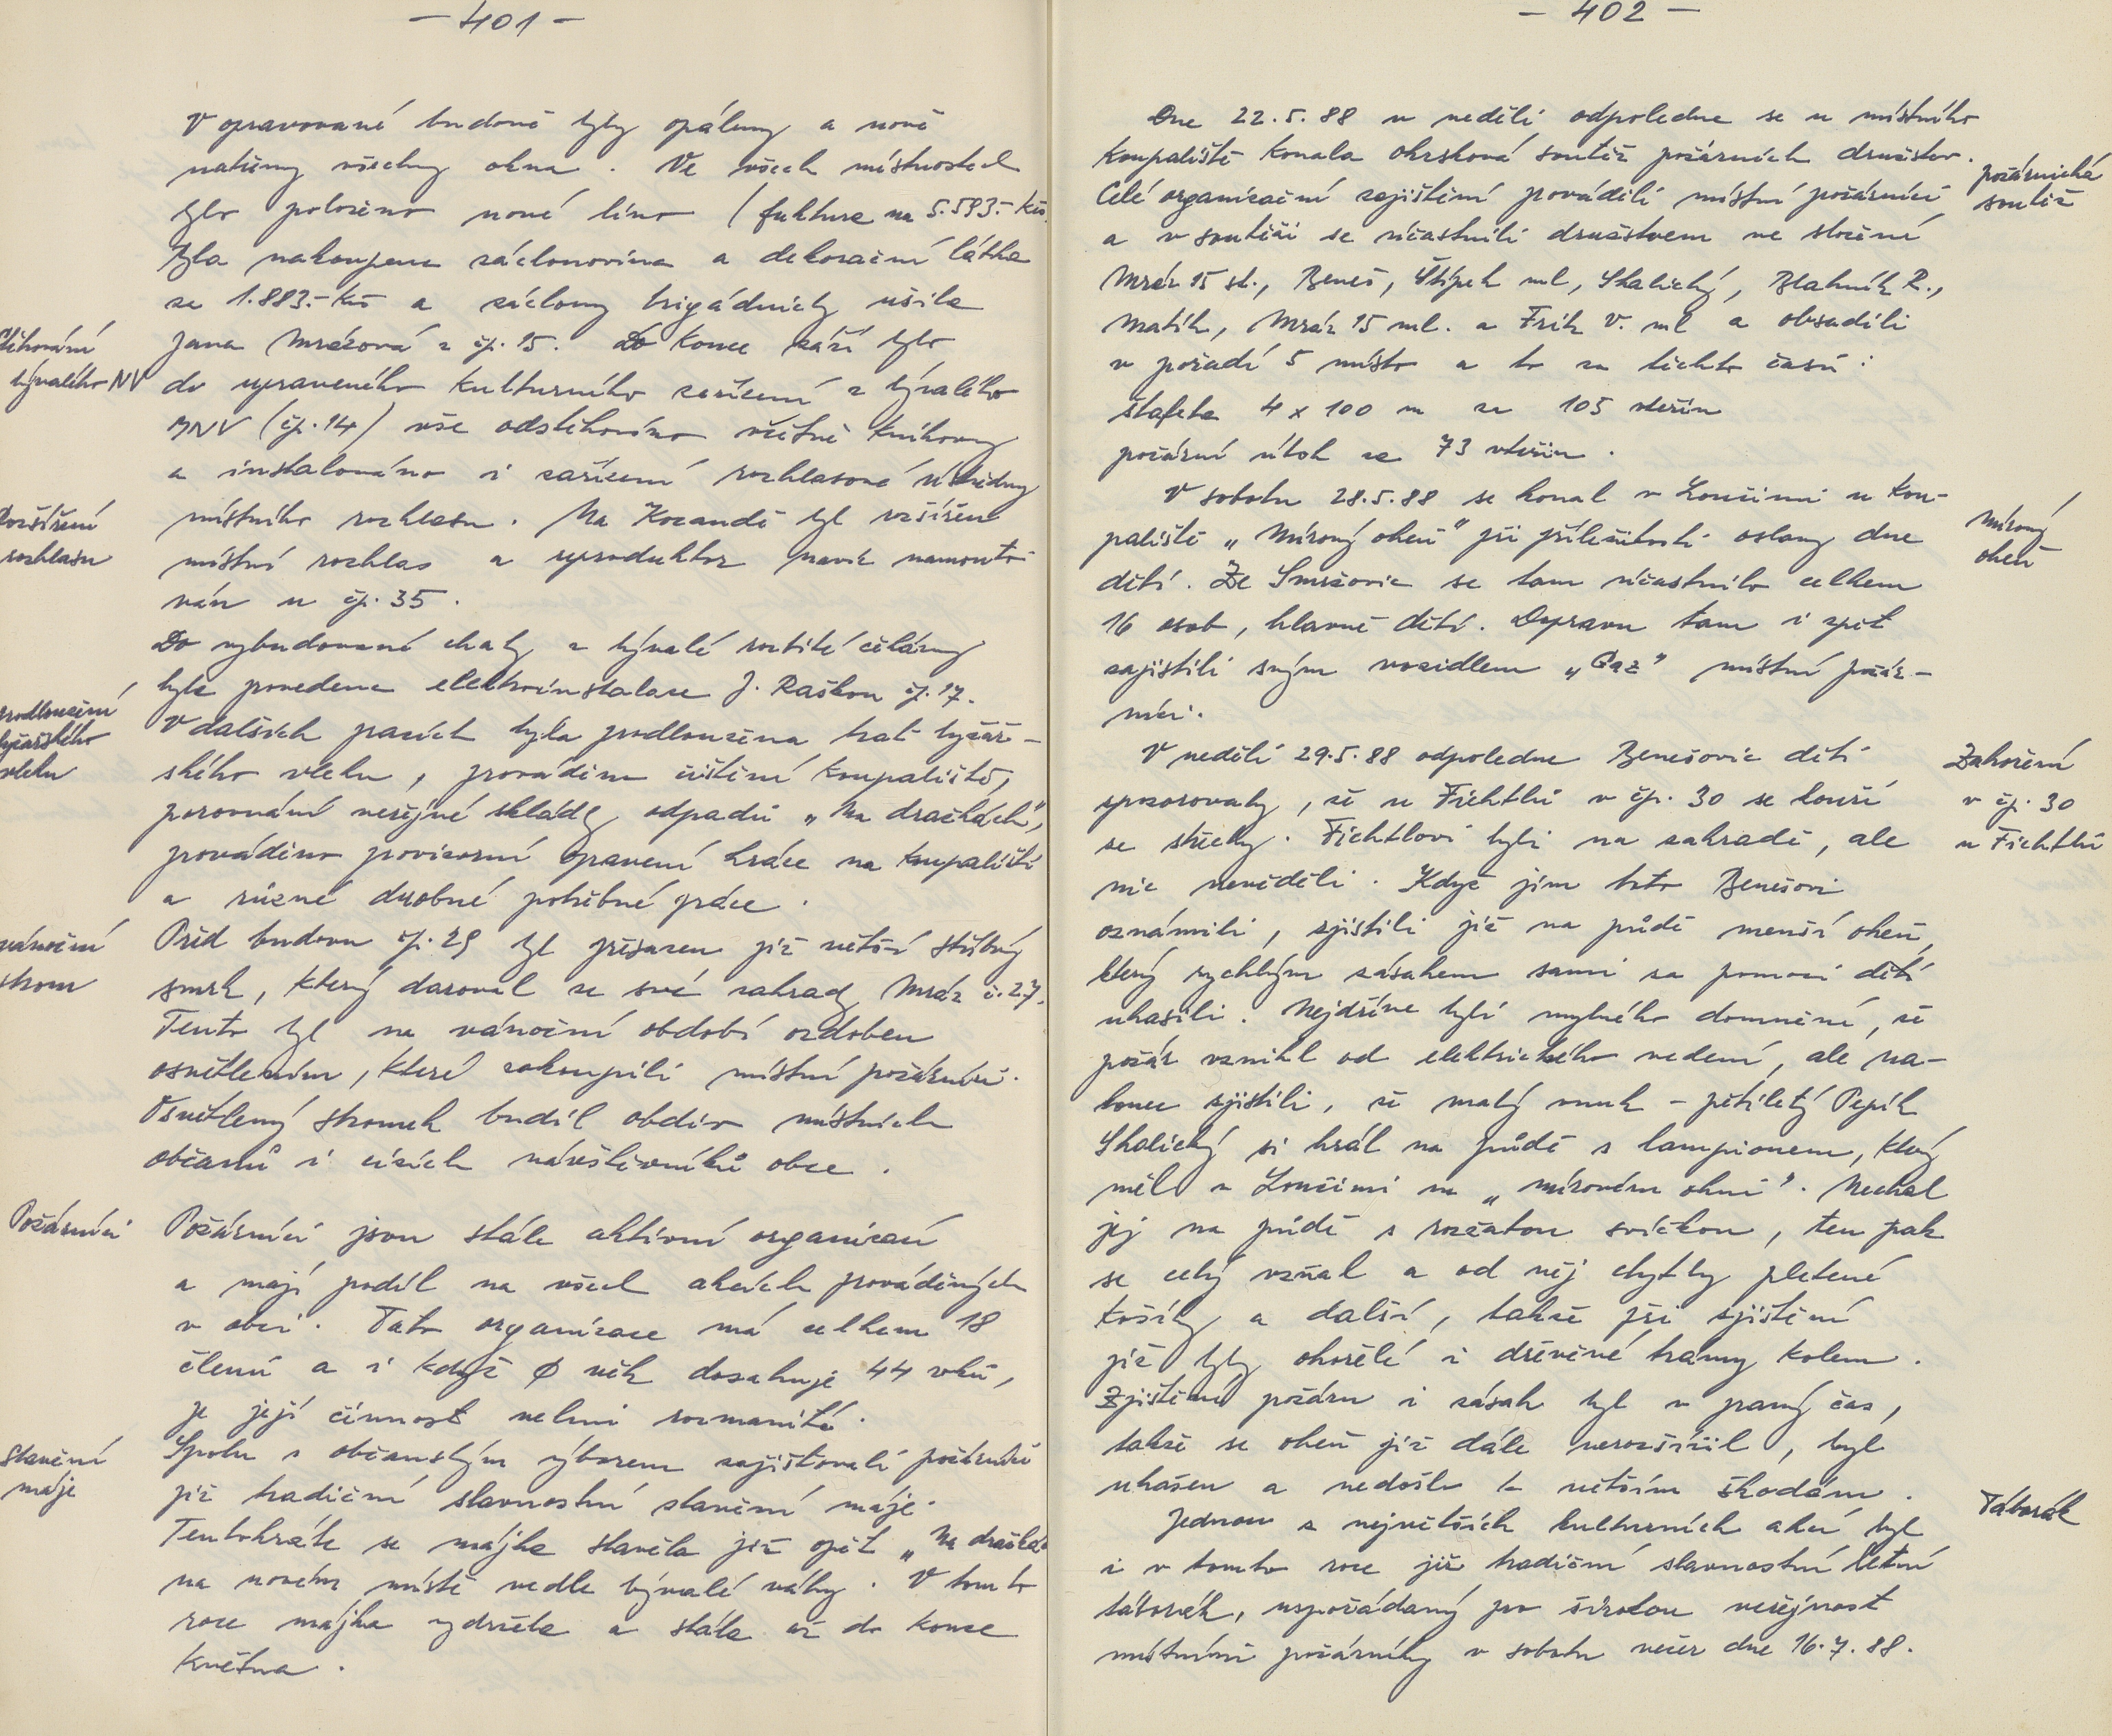 – 401 –
V opravované budově byly opáleny a nově
natřeny všechny okna. Ve všech místnostech
bylo položeno nové lino (faktura na 5.593.- Kčs.
Byla nakoupena záclonovina a dekorační látka
za 1.883.- Kčs a záclony brigádnicky ušila
Jana Mrázová z čp. 15. Do konce září bylo
Stěhování
bývalého NV
do upraveného kulturního zařízení z bývalého
MNV (čp. 14) vše odstěhováno včetně knihovny
a instalováno i zařízení rozhlasové ústředny
Rozšíření
rozhlasu
místního rozhlasu. Na Kocandě byl rozšířen
místní rozhlas a reproduktor navíc namonto-
ván u čp. 35.
Do vybudované chaty z bývalé
byla provedena elektroinstalace J. Raškou čp. 17.
prodloužení
lyžařského
vleku
V dalších pracích byla prodloužena trať lyžař-
ského vleku, prováděno čištění koupaliště,
porovnání veřejné skládky odpadů „Na dračkách",
prováděno provizorní opravení hráze na koupališti
a různé drobné potřebné práce.
vánoční
strom
Před budovu čp. 29 byl přesazen již větší stříbrný
smrk, který daroval ze své zahrady Mráz č. 27.
Tento byl na vánoční období ozdoben
osvětlením, které zakoupili místní požárníci.
Osvětlený stromek budil obdiv místních
občanů i cizích návštěvníků obce.
Požárníci
Požárníci jsou stále aktivní organizací
a mají podíl na všech akcích prováděných
v obci. Tato organizace má celkem 18
členů a i když ∅ věk dosahuje 44 roků,
je její činnost velmi rozmanitá.
Stavění
máje
Spolu s občanským výborem zajišťovali požárníci
již tradiční slavnostní stavění máje.
Tentokráte se májka stavěla již opět „Na dračkách
na novém místě vedle bývalé váhy. V tomto
roce májka vydržela a stála až do konce
května.
– 402 –
Dne 22.5.88 v neděli odpoledne se u místního
koupaliště konala okrsková soutěž požárních družstev.
požárnická
soutěž
Celé organizační zajištění prováděli místní požárníci
a v soutěži se účastnili družstvem ve složení
Mráz 15 st., Beneš, Štípek ml, Skalický, Blahník R.,
Matík, Mráz 15 ml. a Frík V. ml a obsadili
v pořadí 5 místo a to za těchto časů:
štafeta 4 x 100 m za 105 vteřin
požární útok za 73 vteřin.
V sobotu 28.5.88 se konal v Loučimi u kou-
Mírový
oheň
paliště „Mírový oheň" při příležitosti oslavy dne
dětí. Ze Smržovic se tam účastnilo celkem
16 osob, hlavně dětí. Dopravu tam i zpět
zajistili svým vozidlem „Gaz" místní požár-
níci.
V neděli 29.5.88 odpoledne Benešovic děti
Zahoření
v čp. 30
u Fichtlů
zpozorovaly, že u Fichtlů v čp. 30 se kouří
ze střechy. Fichtlovi byli na zahradě, ale
nic nevěděli. Když jim toto Benešovi
oznámili, zjistili již na půdě menší oheň,
který rychlým zásahem sami za pomoci dětí
uhasili. Nejdříve byli mylného domnění, že
požár vznikl od elektrického vedení, ale na-
konec zjistili, že malý vnuk – pětiletý Pepík
Skalický si hrál na půdě s lampionem, který
měl v Loučimi na „mírovém ohni". Nechal
jej na půdě s rozžatou svíčkou, ten pak
se celý vzňal a od něj chytly pletené
košíky a další, takže při zjištění
již byly ohořelé i dřevěné trámy kolem.
Zjištění požáru i zásah byl v pravý čas,
takže se oheň již dále nerozšířil, byl
uhašen a nedošlo k větším škodám.
Táborák
Jednou z největších kulturních akcí byl
i v tomto roce již tradiční slavnostní letní
táborák, uspořádaný pro širokou veřejnost
místními požárníky v sobotu večer dne 16.7.88.